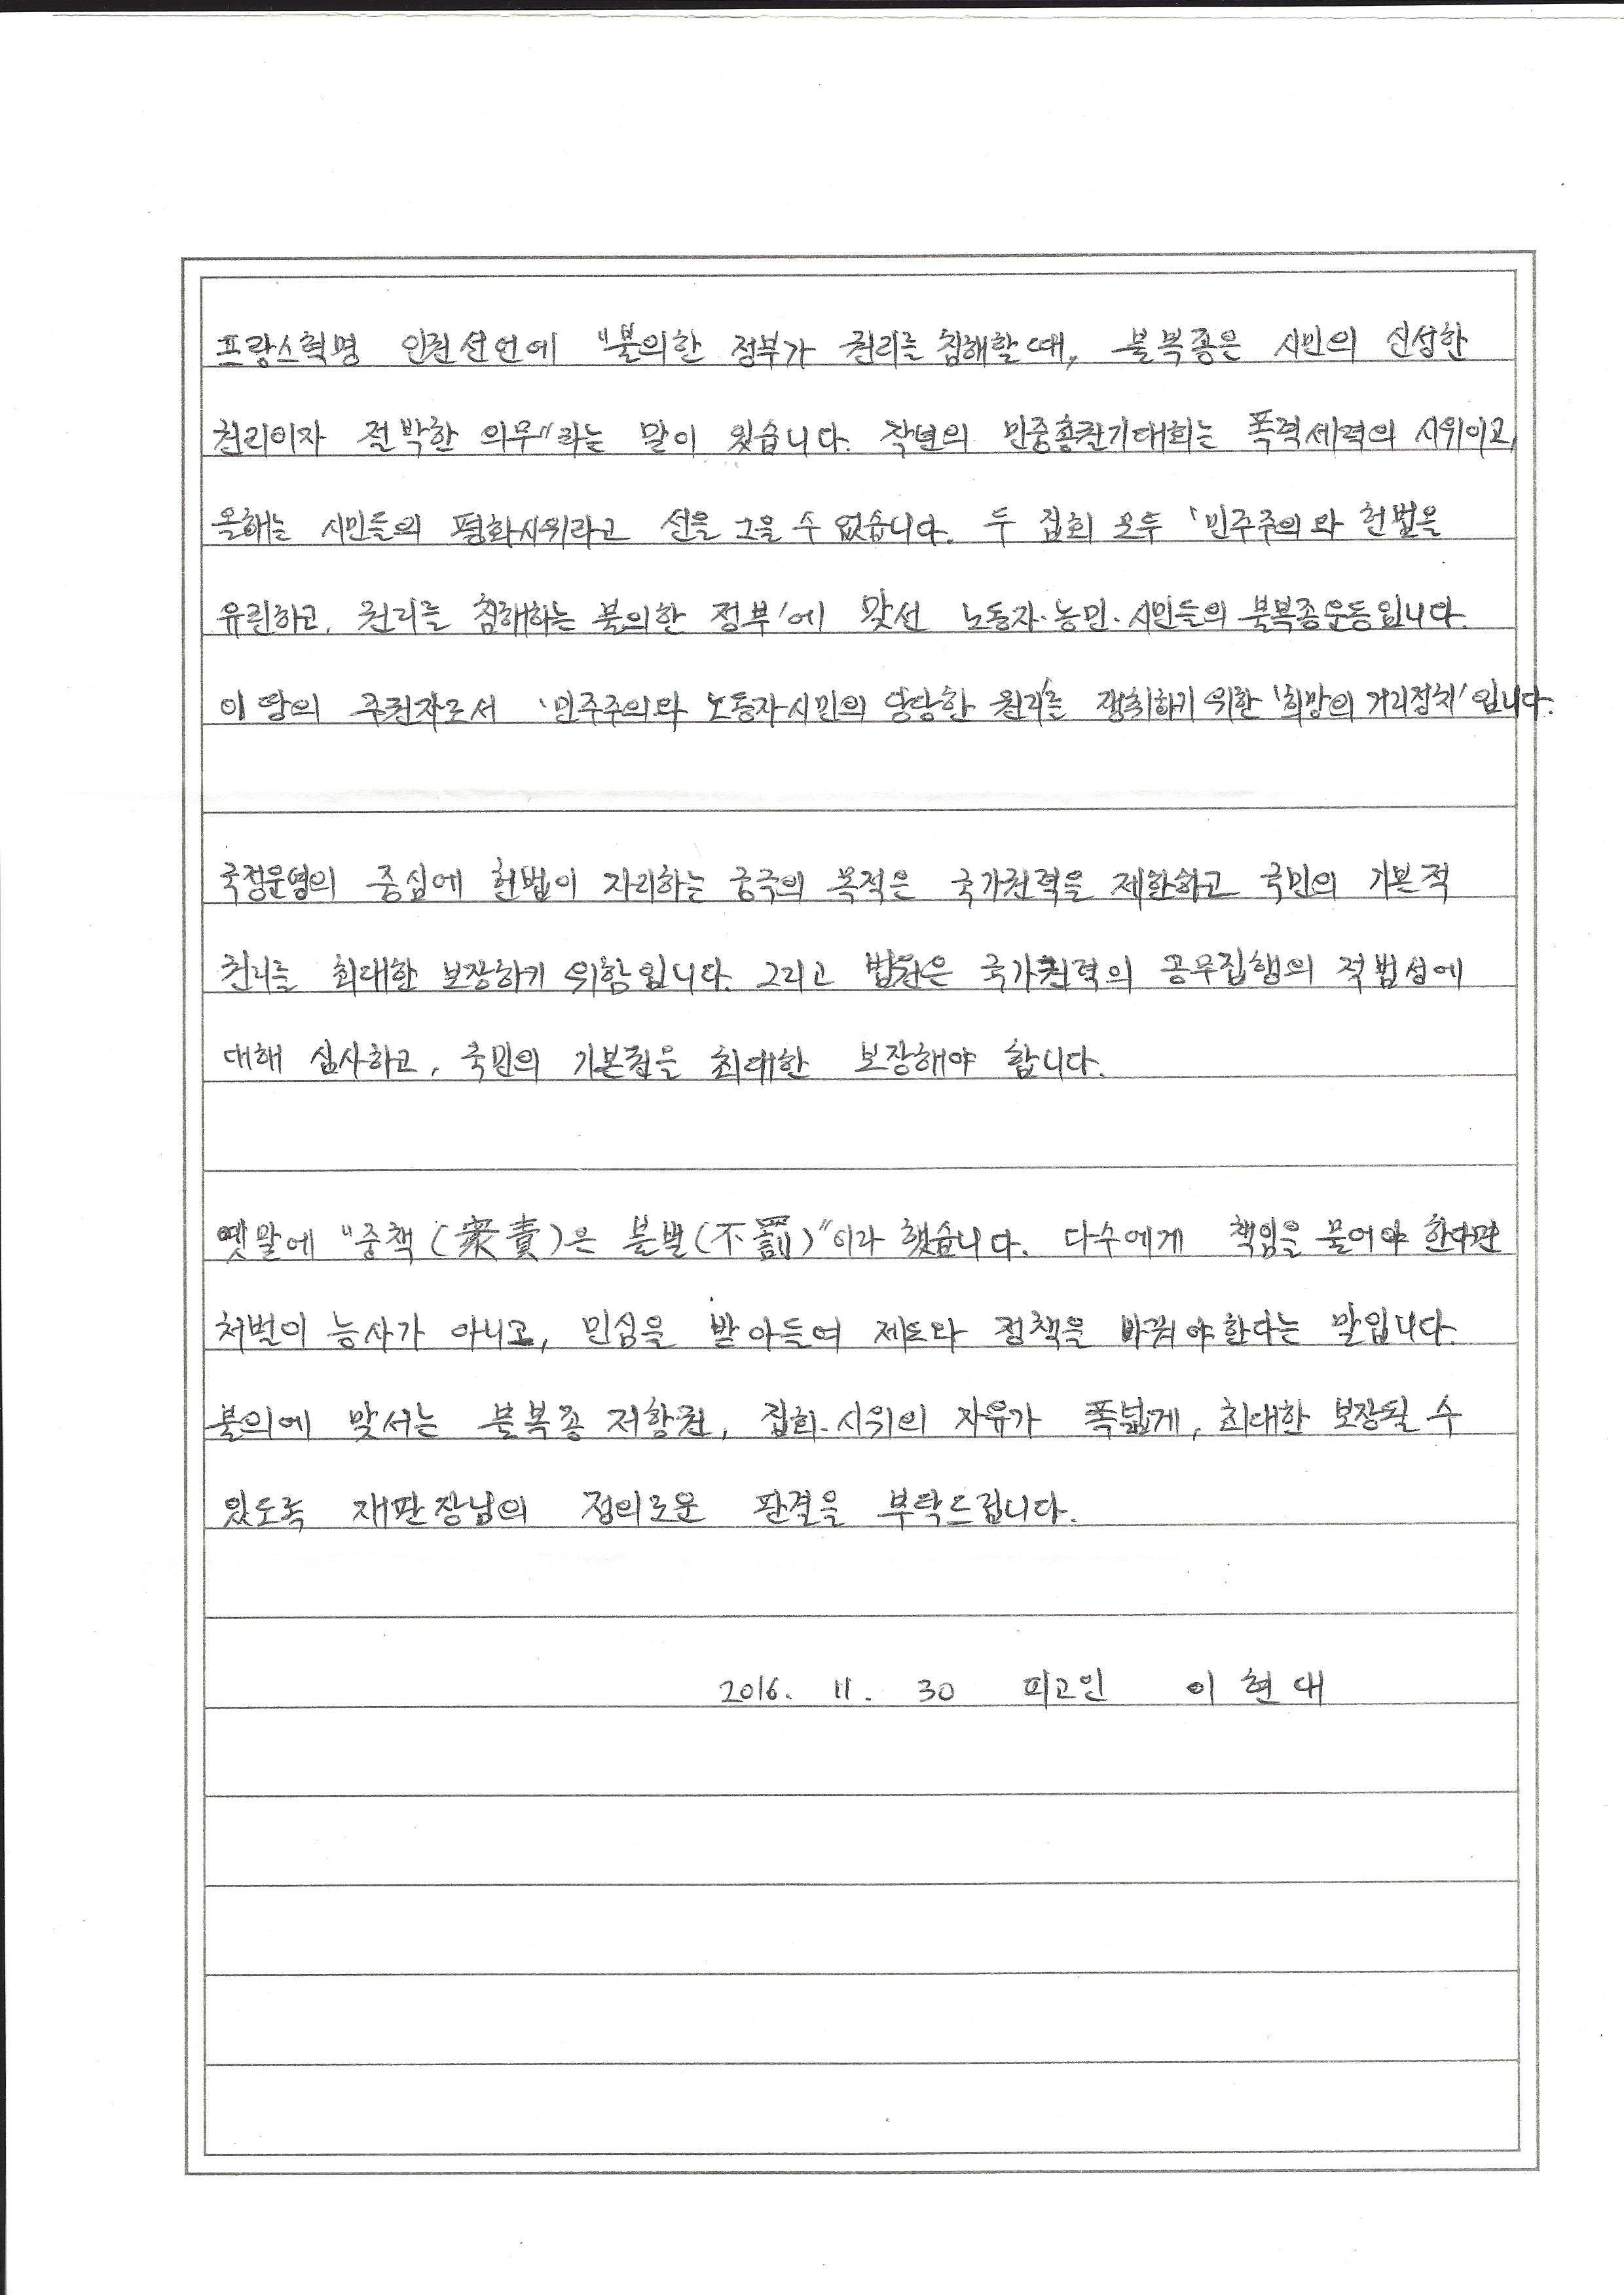 프랑스혁명 인권선언에 "불의한 정부가 권리를 침해할 때, 불복종은 시민의 신성한
권리이자 절박한 의무"라는 말이 있습니다. 작년의 민중총궐기대회는 폭력세력의 시위이고,
올해는 시민들의 평화시위라고 선을 그을 수 없습니다. 두 집회 모두 '민주주의와 헌법을
유린하고, 권리를 침해하는 불의한 정부'에 맞선 노동자·농민·시민들의 불복종운동입니다.
이 땅의 주권자로서 '민주주의와 노동자시민의 당당한 권리'를 쟁취하기 위한 '희망의 거리정치'입니다.
국정운영의 중심에 헌법이 자리하는 궁극의 목적은 국가권력을 제한하고 국민의 기본적
권리를 최대한 보장하기 위함입니다. 그리고 법원은 국가권력의 공무집행의 적법성에
대해 심사하고, 국민의 기본권을 최대한 보장해야 합니다.
옛말에 "중책(衆責)은 불벌(不罰)"이라 했습니다. 다수에게 책임을 물어야 한다면
처벌이 능사가 아니고, 민심을 받아들여 제도와 정책을 바꿔야한다는 말입니다.
불의에 맞서는 불복종 저항권, 집회·시위의 자유가 폭넓게, 최대한 보장될 수
있도록 재판장님의 정의로운 판결을 부탁드립니다.
2016. 11. 30 피고인 이현대